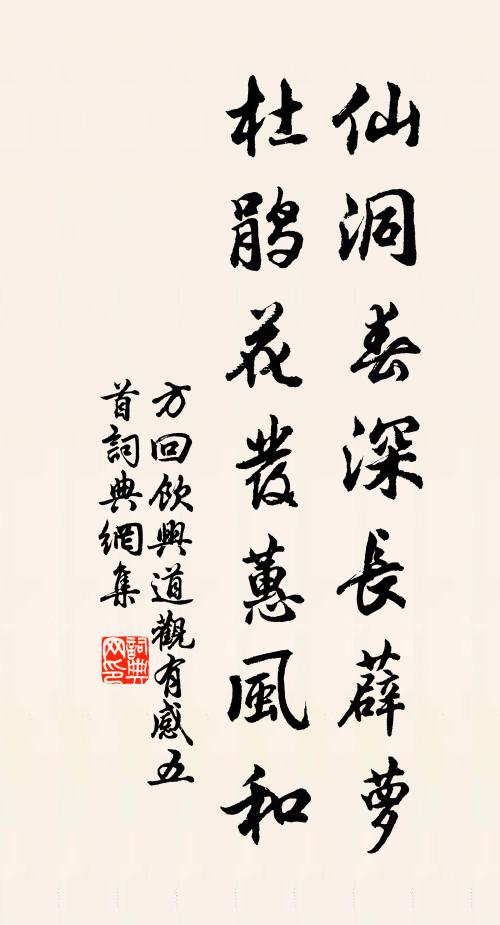 仙洞春深長薜蘿
杜鹃花發蕙風和
方回飲興道觀有感五
首詞典網集
詞典网印